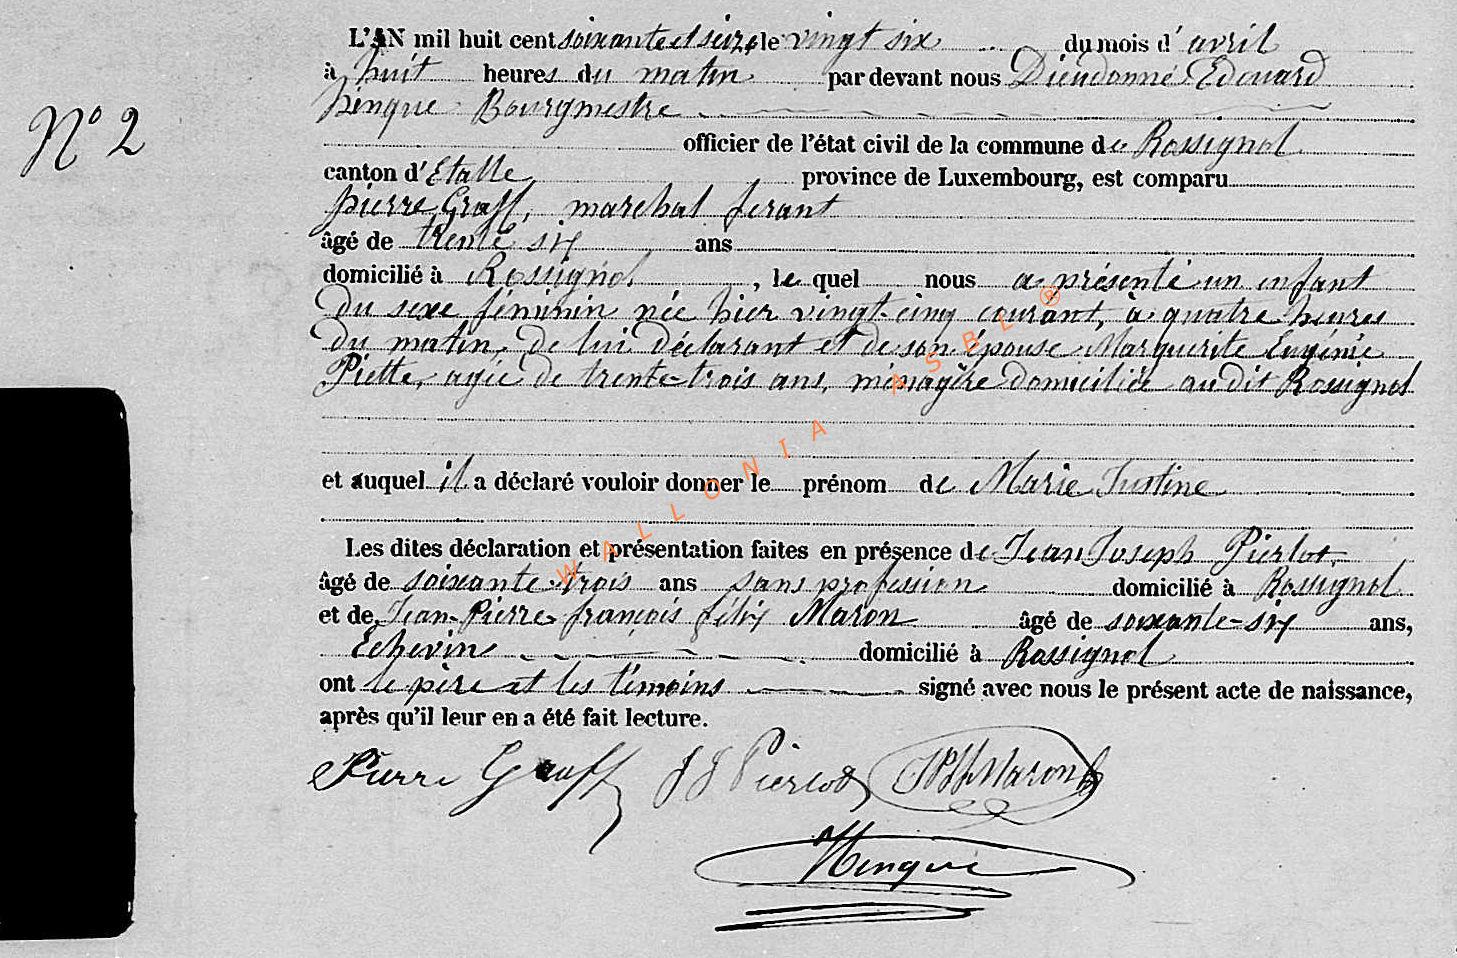 L'AN mil huit cent soixante et seize le vingt six du mois d' avril
à huit heures du matin par devant nous Dieudonné Edouard
hinque Bourgmestre
N° 2
officier de l'état civil de la commune de Rossignol
canton d'Etalle province de Luxembourg, est comparu
pierre Graff, marchal ferant
âgé de trente six ans
domicilié à Rossignol , le quel nous a présenté un enfant
du sexe féminin née hier vingt-cinq courant, à quatre heures
du matin, de lui déclarant et de son épouse Marguerite Eugénie
Piette, agée de trente-trois ans, ménagère domiciliée audit Rossignol
et auquel il a déclaré vouloir donner le prénom de Marie Justine
Les dites déclaration et présentation faites en présence de Jean Joseph Pierlot,
âgé de soixante-trois ans sans profession domicilié à Rossignol
et de Jean-Pierre-françois félix Maron âgé de soixante-six ans,
Echevin domicilié à Rossignol
ont le père et les témoins signé avec nous le présent acte de naissance,
après qu'il leur en a été fait lecture.
Pierre Graff J J Pierlot JPFf Maron
Hinque
WALLONIA ASBL ®